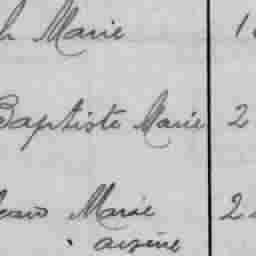 Marie 1
Baptiste Marie 2
Jean Marie 2
arsène